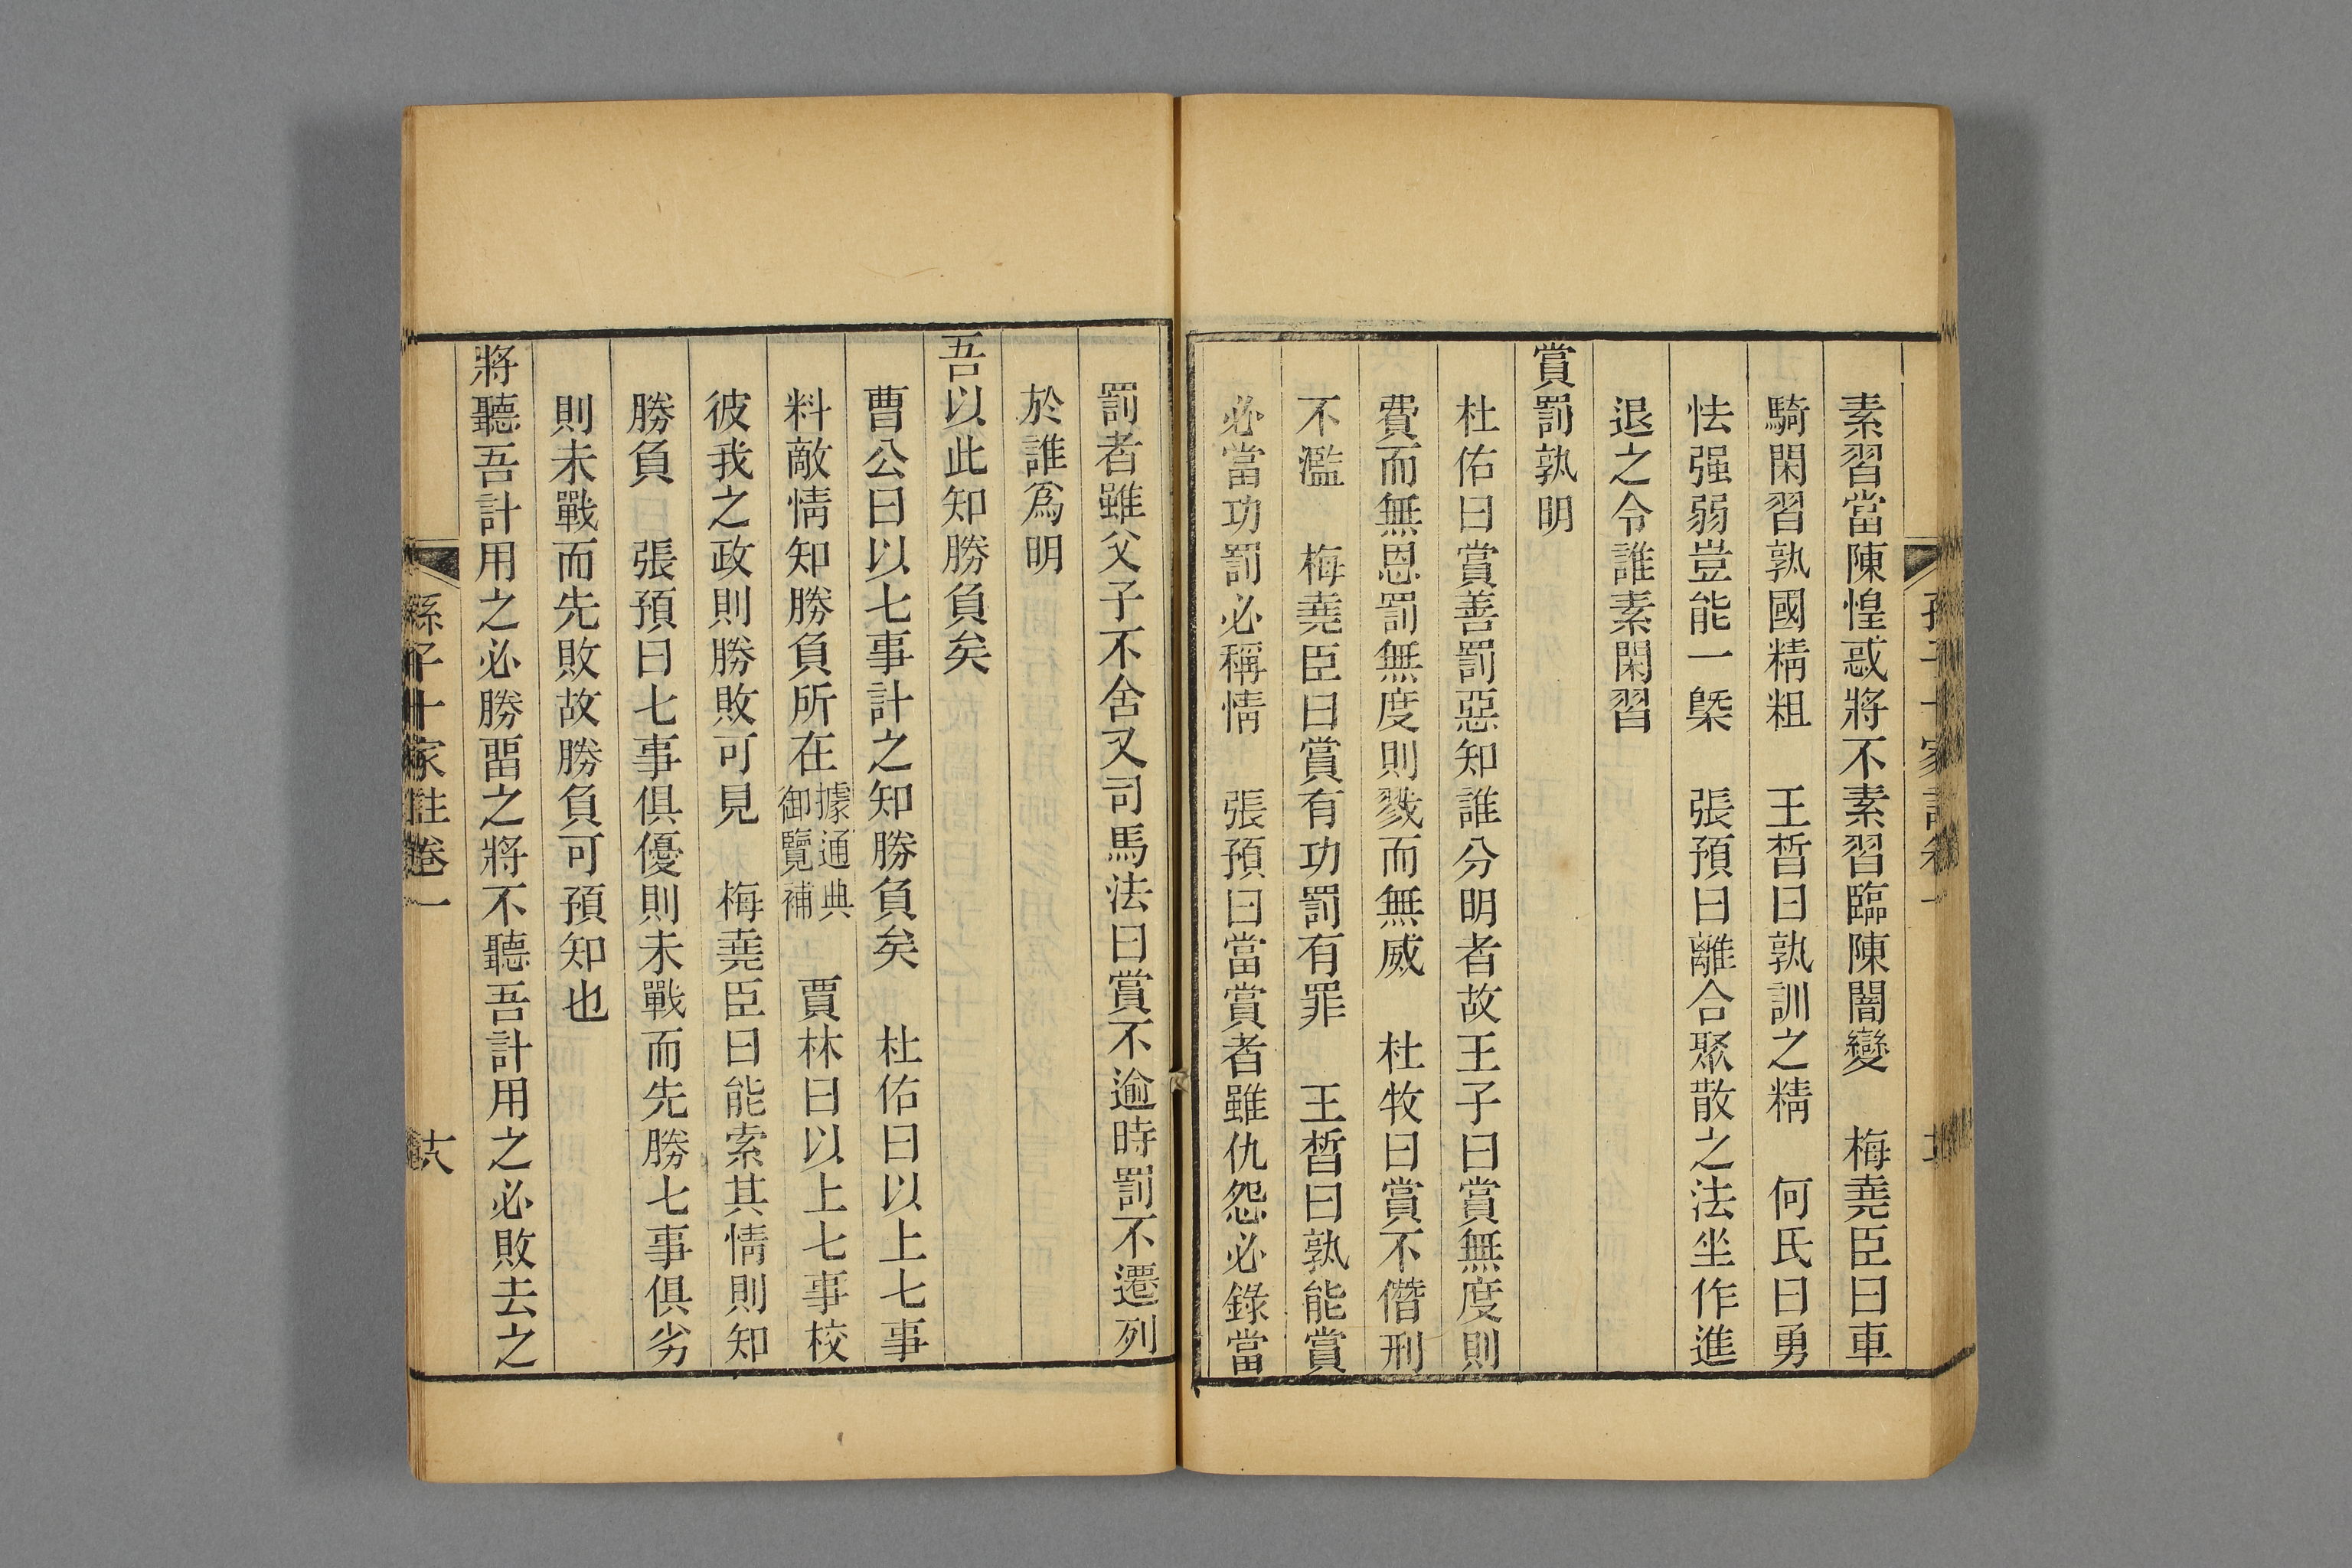 素習當陳惶惑將不素習臨陳闇變　梅堯臣曰車
騎閑習孰國精粗　王晳曰孰訓之精　何氏曰勇
怯强弱豈能一槩　張預曰離合聚散之法坐作進
退之令誰素閑習
賞罰孰明
杜佑曰賞善罰惡知誰分明者故王子曰賞無度則
費而無恩罰無度則戮而無威　杜牧曰賞不僭刑
不濫　梅堯臣曰賞有功罰有罪　王晳曰孰能賞
必當功罰必稱情　張預曰當賞者雖仇怨必錄當
罰者雖父子不舍又司馬法曰賞不逾時罰不遷列
於誰爲明
吾以此知勝負矣
曹公曰以七事計之知勝負矣　杜佑曰以上七事
料敵情知勝負所在據通典御覽補　賈林曰以上七事校
彼我之政則勝敗可見　梅堯臣曰能索其情則知
勝負　張預曰七事俱優則未戰而先勝七事俱劣
則未戰而先敗故勝負可預知也
將聽吾計用之必勝畱之將不聽吾計用之必敗去之
孫子十家註卷一
六